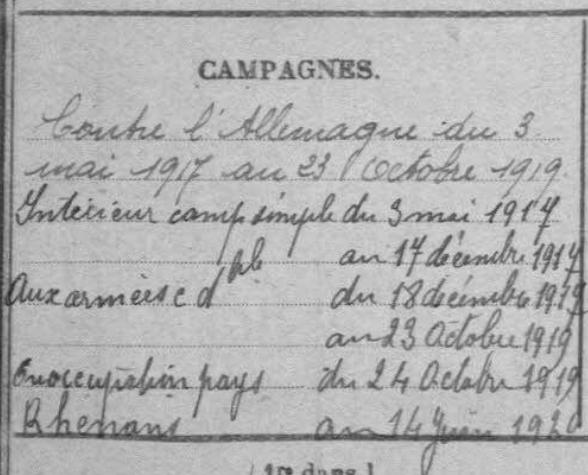 CAMPAGNES.
Contre l'Allemagne du 3
mai 1917 au 23 Octobre 1919.
Intérieur camp simple du 3 mai 1917
au 17 décembre 1917
Aux armées c d ble du 18 décembre 1917
au 23 Octobre 1919
En occupation pays du 24 Octobre 1919
Rhénans au 14 Juin 1920